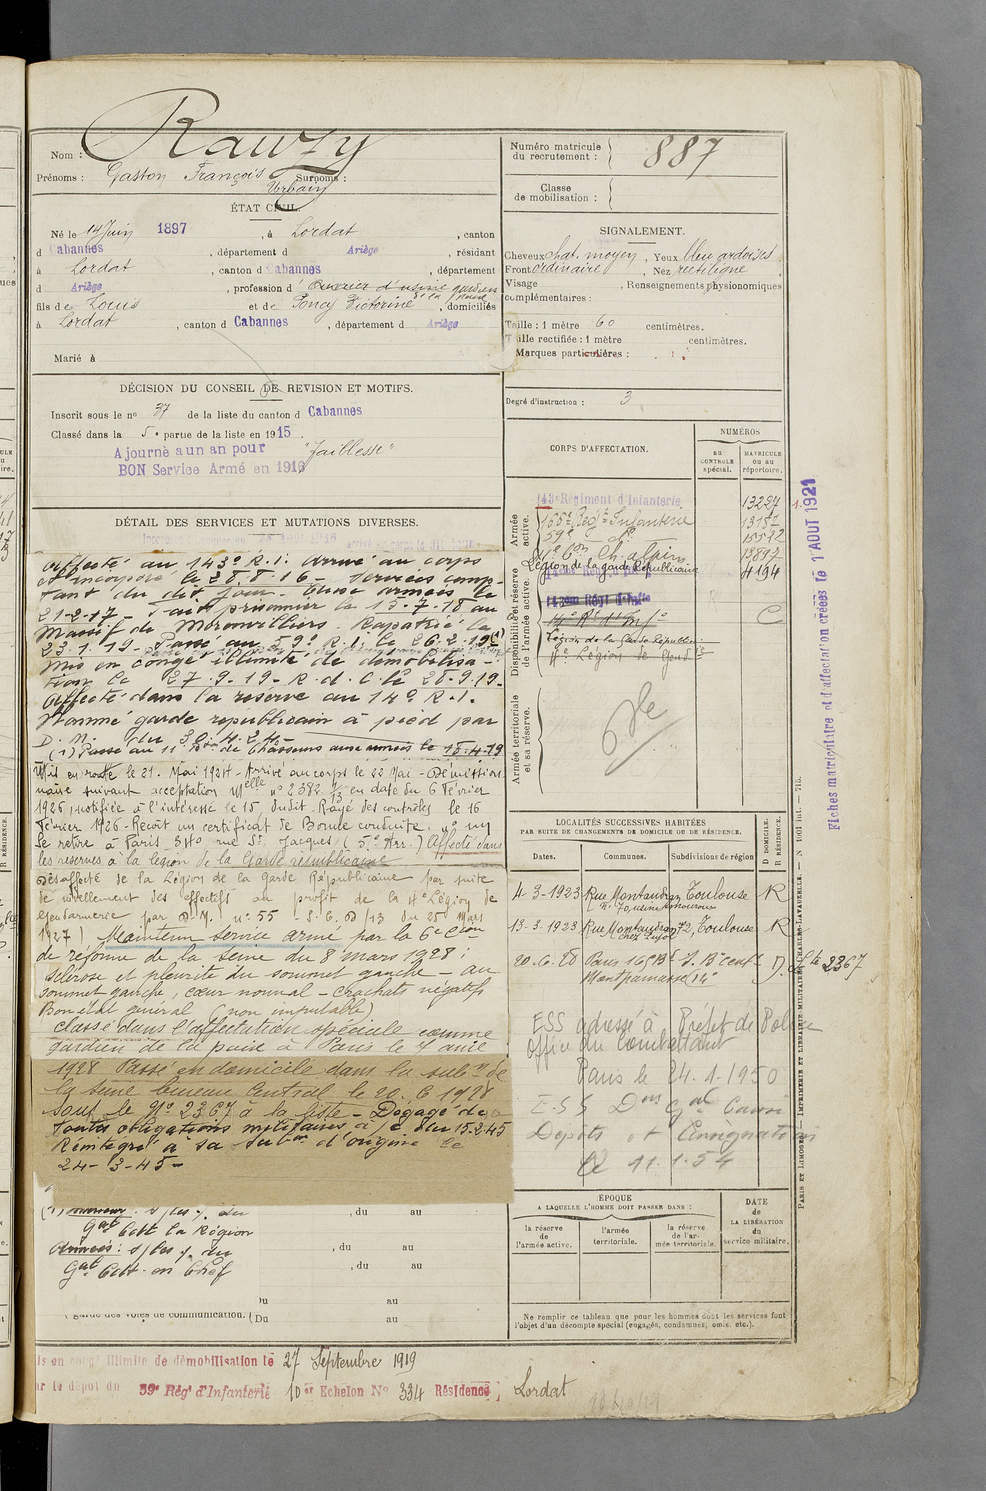 Nom : Rauzy
Prénoms : Gaston François Surnoms :
Urbain
ÉTAT CIVIL.
Né le 14 Juin 1897, à Lordat, canton
d Cabannes, département d Ariège, résidant
à Lordat, canton d Cabannes, département
d Ariège, profession d' ouvrier d'usine gardien
de la paix
fils de Louis et de Poncy Victorine, domiciliés
à Lordat, canton d Cabannes, département d Ariège
Marié à
DÉCISION DU CONSEIL DE REVISION ET MOTIFS.
Inscrit sous le no 37 de la liste du canton d Cabannes
Classé dans la 5e partie de la liste en 1915.
Ajourné a un an pour "faiblesse"
BON Service Armé en 1916
DÉTAIL DES SERVICES ET MUTATIONS DIVERSES.
Affecté au 143e R.I. Arrivé au corps
et incorporé le 28.8.16 - Services comp-
tant du dit jour. Passé armées le
21-2-17 - Fait prisonnier le 15-7-18 au
Massif de Moronvilliers. Rapatrié le
23.1.19. Passé au 59e R.I. le 26-2-19 (1)
Mis en congé illimité de démobilisa-
tion le 27-9-19- R.d.C le 28-9-19-
Affecté dans la réserve au 14e R.I.
Nommé garde républicain à pied par
D.M. du 30.4.24-
(1) Passé au 11e Bon de Chasseurs aux armées le 18-4-19
Mis en route le 21. Mai 1924 - Arrivé au corps le 22 Mai - Démission
naire suivant acceptation Melle no 2382 9/13 en date du 6 Février
1926, notifiée à l'intéressé le 15 dudit. Rayé des contrôles le 16
Février 1926 - Reçoit un certificat de Bonne conduite.
Se retire à Paris, 340 rue St. Jacques (5e Arr.) Affecté dans
les réserves à la légion de la Garde républicaine
Désaffecté de la Légion de la Garde Républicaine par suite
de nivellement des effectifs au profit de la 4e Légion de
Gendarmerie par D.M. no 55 du 25 Mars
1927) Maintenu service armé par la 6e Cion
de réforme de la Seine du 8 mars 1928 :
sclérose et pleurite du sommet gauche - au
sommet gauche, cœur normal - Crachats négatifs
Bon état général (non imputable)
Classé dans l'affectation spéciale comme
gardien de la paix à Paris le 7 avril
1928 Passé en domicile dans la subon de
la Seine bureau Central le 20.6.1928
sous le No 2367 à la liste - Dégagé de
toutes obligations militaires à/c du 15-2-45
Réintégré à sa subon d'origine le
24-3-45-
(1) Intérieur : s/les y. du, du au
Gal Cdt la Région
Armées : s/les y. du, du au
Gal Cdt. en Chef, du au
Du au
garde des voies de communication. (Du au
is en congé illimité de démobilisation le 27 Septembre 1919
ar le dépôt du 59e Régt d'Infanterie 10er Echelon No 334 Résidence Lordat
Numéro matricule
du recrutement : 887
Classe
de mobilisation :
SIGNALEMENT.
Cheveux chat. moyen, Yeux bleu ardoisés
Front ordinaire, Nez rectiligne
Visage, Renseignements physionomiques
complémentaires :
Taille : 1 mètre 60 centimètres.
Taille rectifiée : 1 mètre centimètres.
Marques particulières :
Degré d'instruction : 3
CORPS D'AFFECTATION.
NUMÉROS
AU
CONTROLE
spécial.
MATRICULE
OU AU
répertoire.
Armée
active.
143e Régiment d'Infanterie 13227
155e Regt Infanterie
59e 15582
11e Bon Ch. alpins 13897
Légion de la garde Républicaine 4194
Disponibilité et réserve
de l'armée active.
143em Régt d'Infte
14e Rt d'Infie C
Légion de la Garde Républicaine
4e Légion de Gendie
Armée territoriale
et sa réserve.
LOCALITÉS SUCCESSIVES HABITÉES
PAR SUITE DE CHANGEMENTS DE DOMICILE OU DE RÉSIDENCE.
D DOMICILE.
R RÉSIDENCE.
Dates. Communes. Subdivisions de région
4-3-1923 Rue Montaudran Toulouse R
No 70, usine
13-3-1923 Rue Montaudran 72, Toulouse R
20-6-28 Paris 165 Bd S. Bau cent D Lte 2367
Montparnasse 14e
ESS adressé à Préfet de Police
Office du Combattant
Paris le 24.1.1950
E.S.S Don Gal Caisse
Depots et Consignations
le 11.1.54
ÉPOQUE
A LAQUELLE L'HOMME DOIT PASSER DANS :
DATE
de
LA LIBÉRATION
du
service militaire.
la réserve
de
l'armée active.
l'armée
territoriale.
la réserve
de l'ar-
mée territoriale.
Ne remplir ce tableau que pour les hommes dont les services font
l'objet d'un décompte spécial (engagés, condamnés, omis, etc.).
PARIS ET LIMOGES. — IMPRIMERIE ET LIBRAIRIE MILITAIRES CHARLES-LAVAUZELLE. — N° 1001 int. — 715.
Fiches matriculaire et d'affectation créées le 1 AOUT 1921